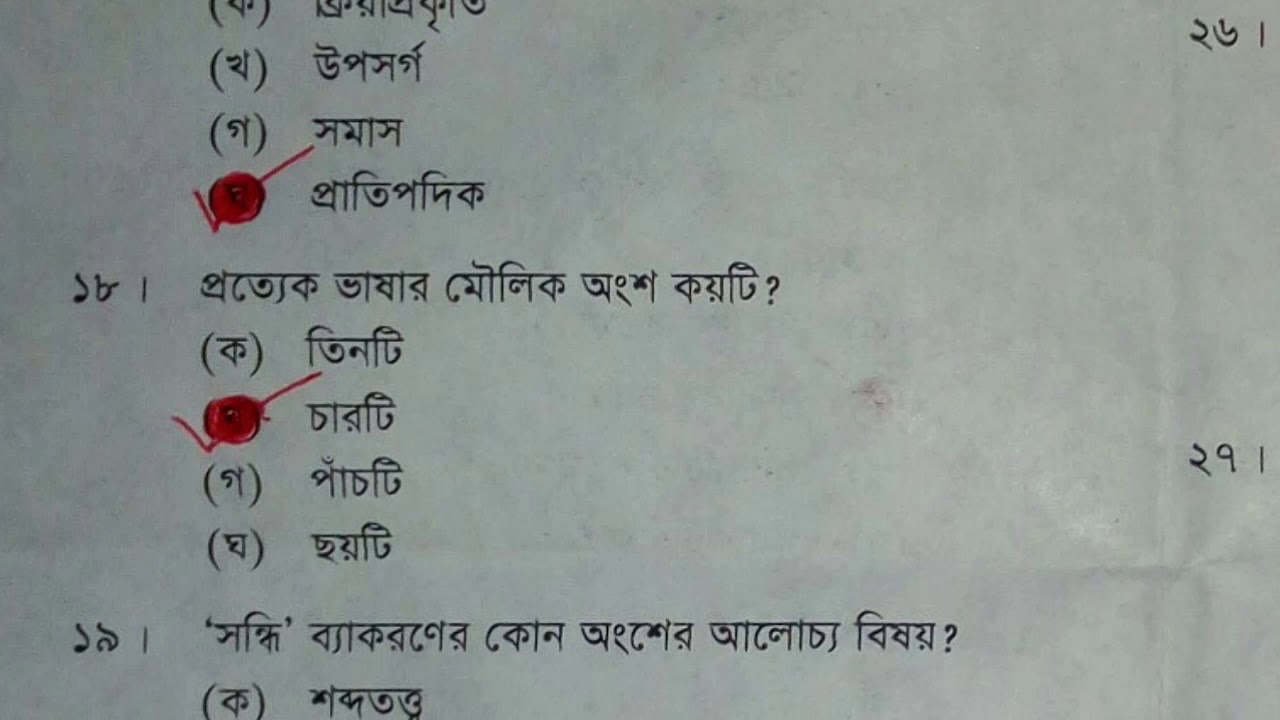 (ক) ক্রিয়াপ্রকৃতি
(খ) উপসর্গ
(গ) সমাস
প্রাতিপদিক
১৮। প্রত্যেক ভাষার মৌলিক অংশ কয়টি?
(ক) তিনটি
চারটি
(গ) পাঁচটি
(ঘ) ছয়টি
১৯। ‘সন্ধি’ ব্যাকরণের কোন অংশের আলোচ্য বিষয়?
(ক) শব্দতত্ত্ব
২৬।
২৭।